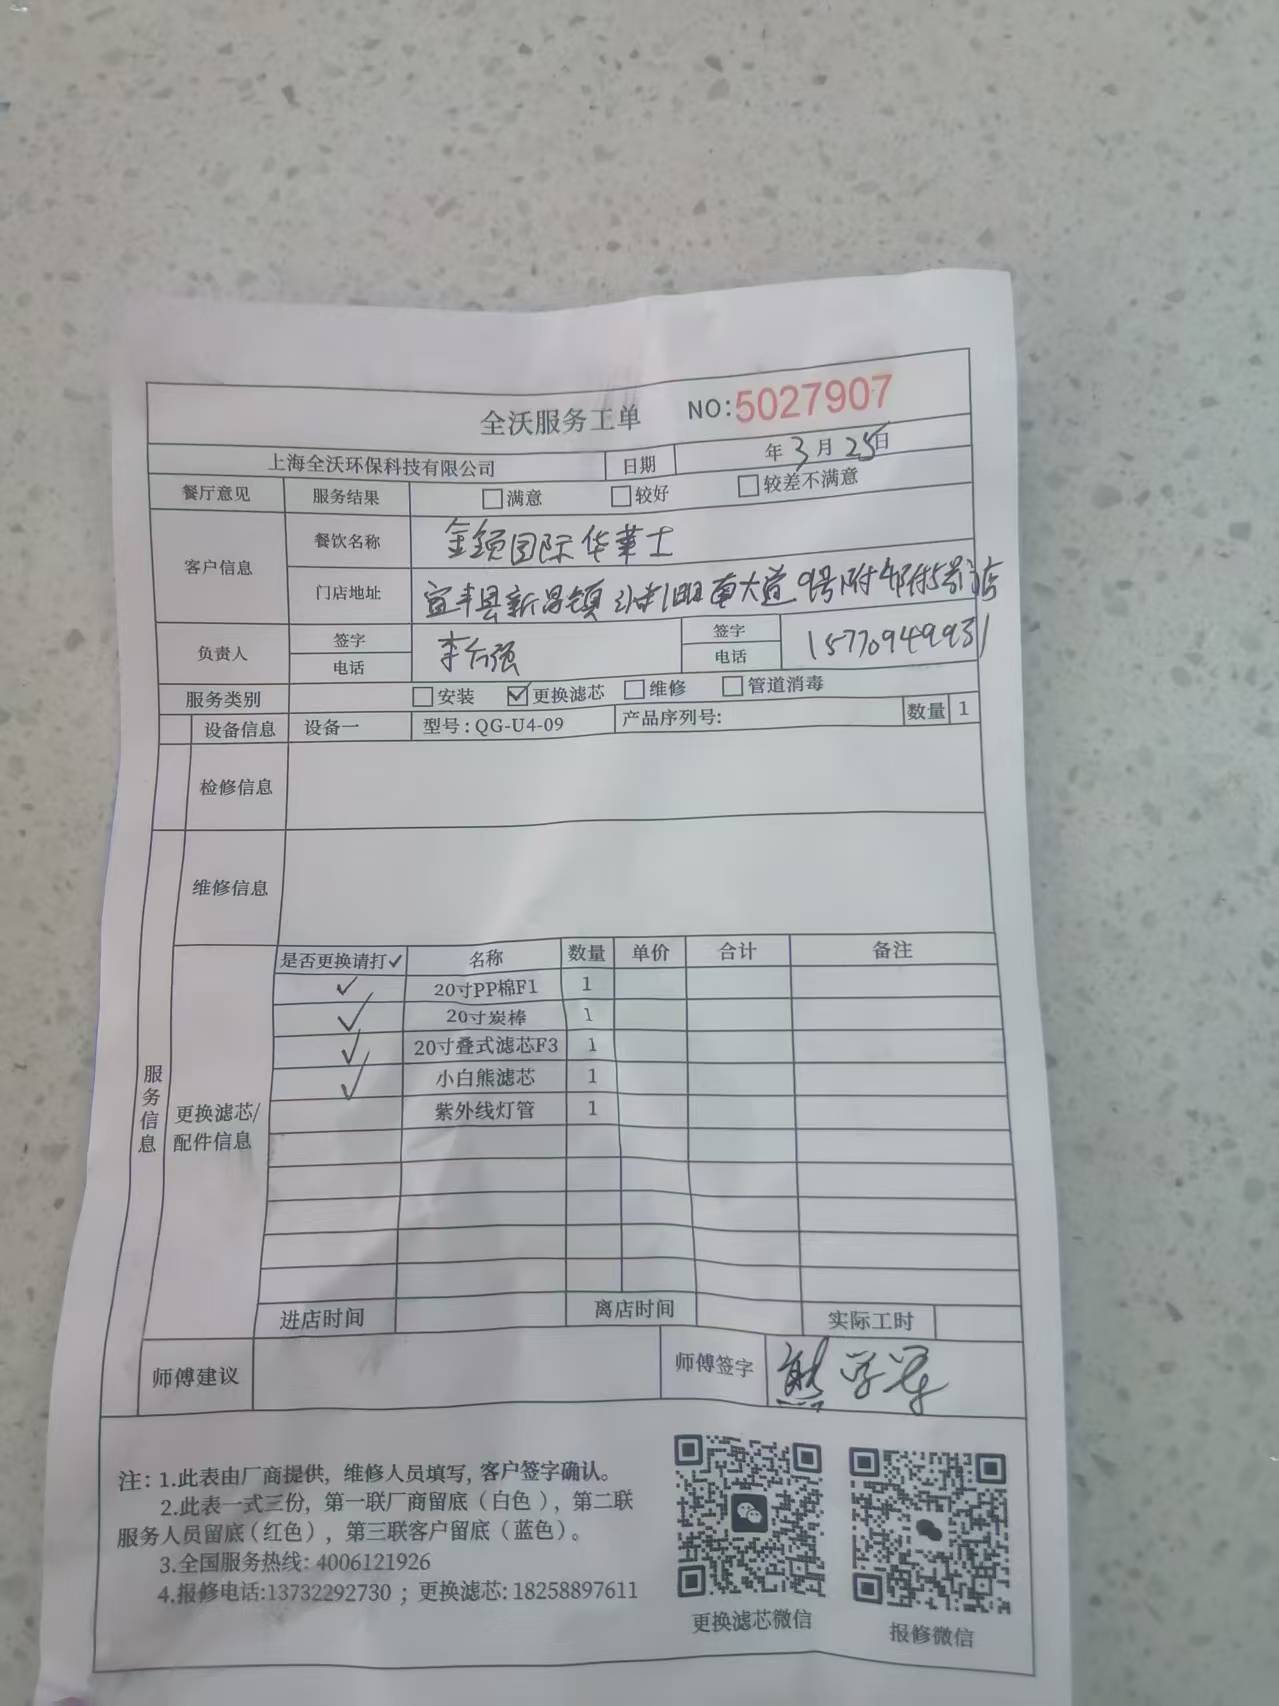 全沃服务工单 NO:5027907
上海全沃环保科技有限公司 日期 年3月25日
餐厅意见 服务结果 满意 较好 较差不满意
客户信息 餐饮名称 国际华莱士
门店地址 宜丰县新昌镇 南大道9号附
负责人 签字 李 强 签字
电话 电话 15770949931
服务类别 安装 更换滤芯 维修 管道消毒
设备信息 设备一 型号:QG-U4-09 产品序列号: 数量 1
检修信息
维修信息
服务信息
更换滤芯/配件信息
是否更换请打✓ 名称 数量 单价 合计 备注
✓ 20寸PP棉F1 1
✓ 20寸炭棒 1
✓ 20寸叠式滤芯F3 1
✓ 小白熊滤芯 1
紫外线灯管 1
进店时间 离店时间 实际工时
师傅建议 师傅签字 熊学军
注: 1.此表由厂商提供, 维修人员填写, 客户签字确认。
2.此表一式三份, 第一联厂商留底(白色), 第二联
服务人员留底(红色), 第三联客户留底(蓝色)。
3.全国服务热线: 4006121926
4.报修电话:13732292730 ; 更换滤芯: 18258897611
更换滤芯微信 报修微信